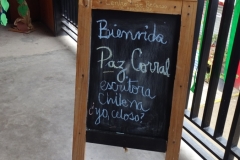 Bienvenida
Paz Corral
escritora
Chilena
¿yo, celoso?